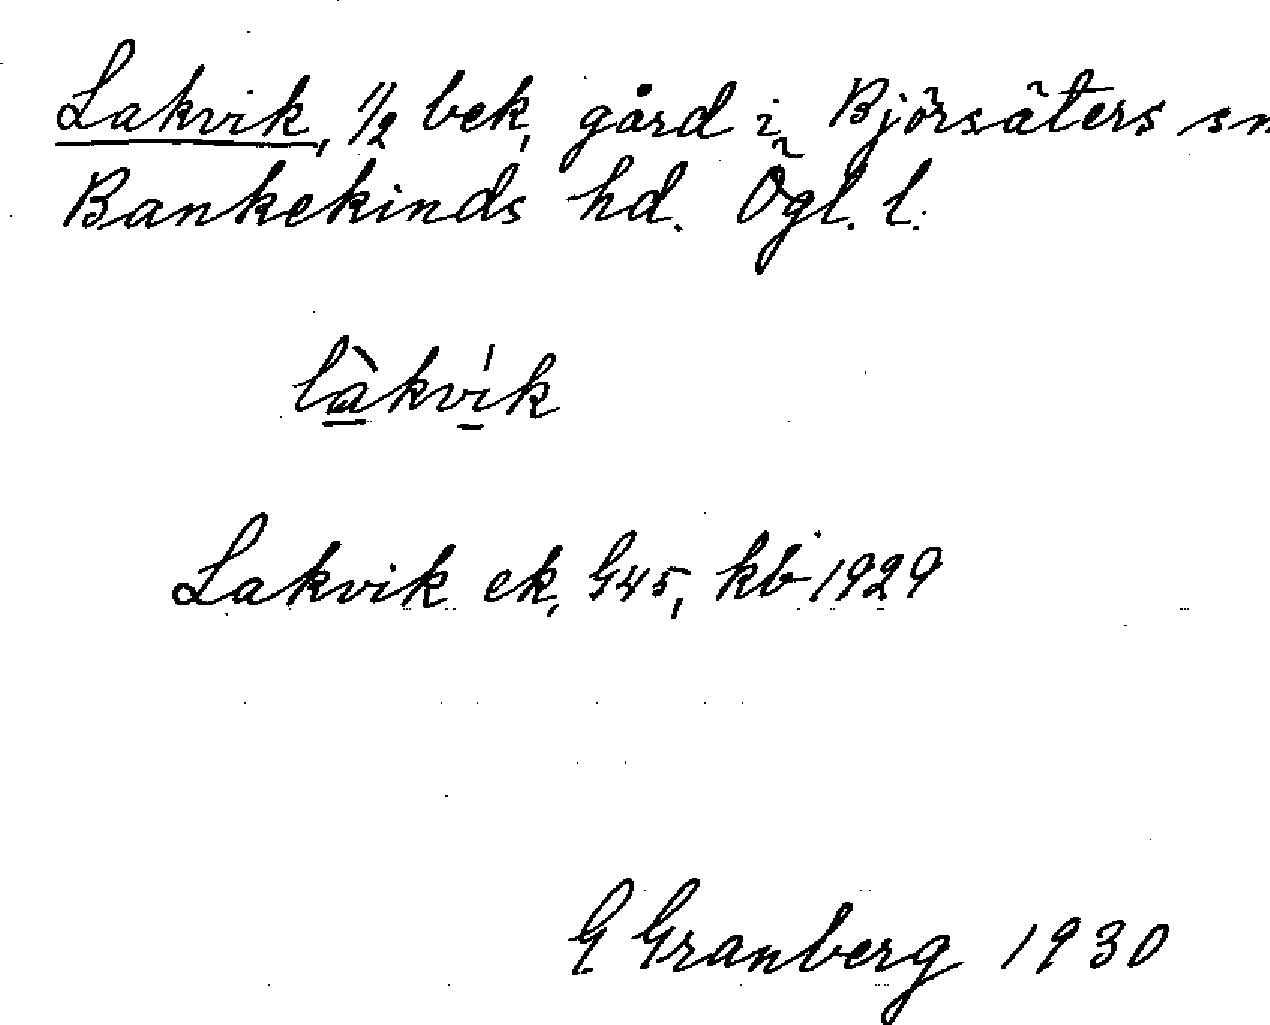 Lakvik, 1/2 bek, gård i Björsäters sn
Bankekinds hd. Ögl. l.
làkvík
Lakvik ek, G45, kb 1929
G Granberg 1930